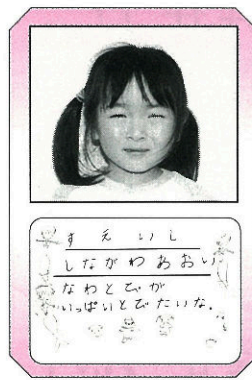 すえいし
しながわあおい
なわとびが
いっぱいとびたいな。